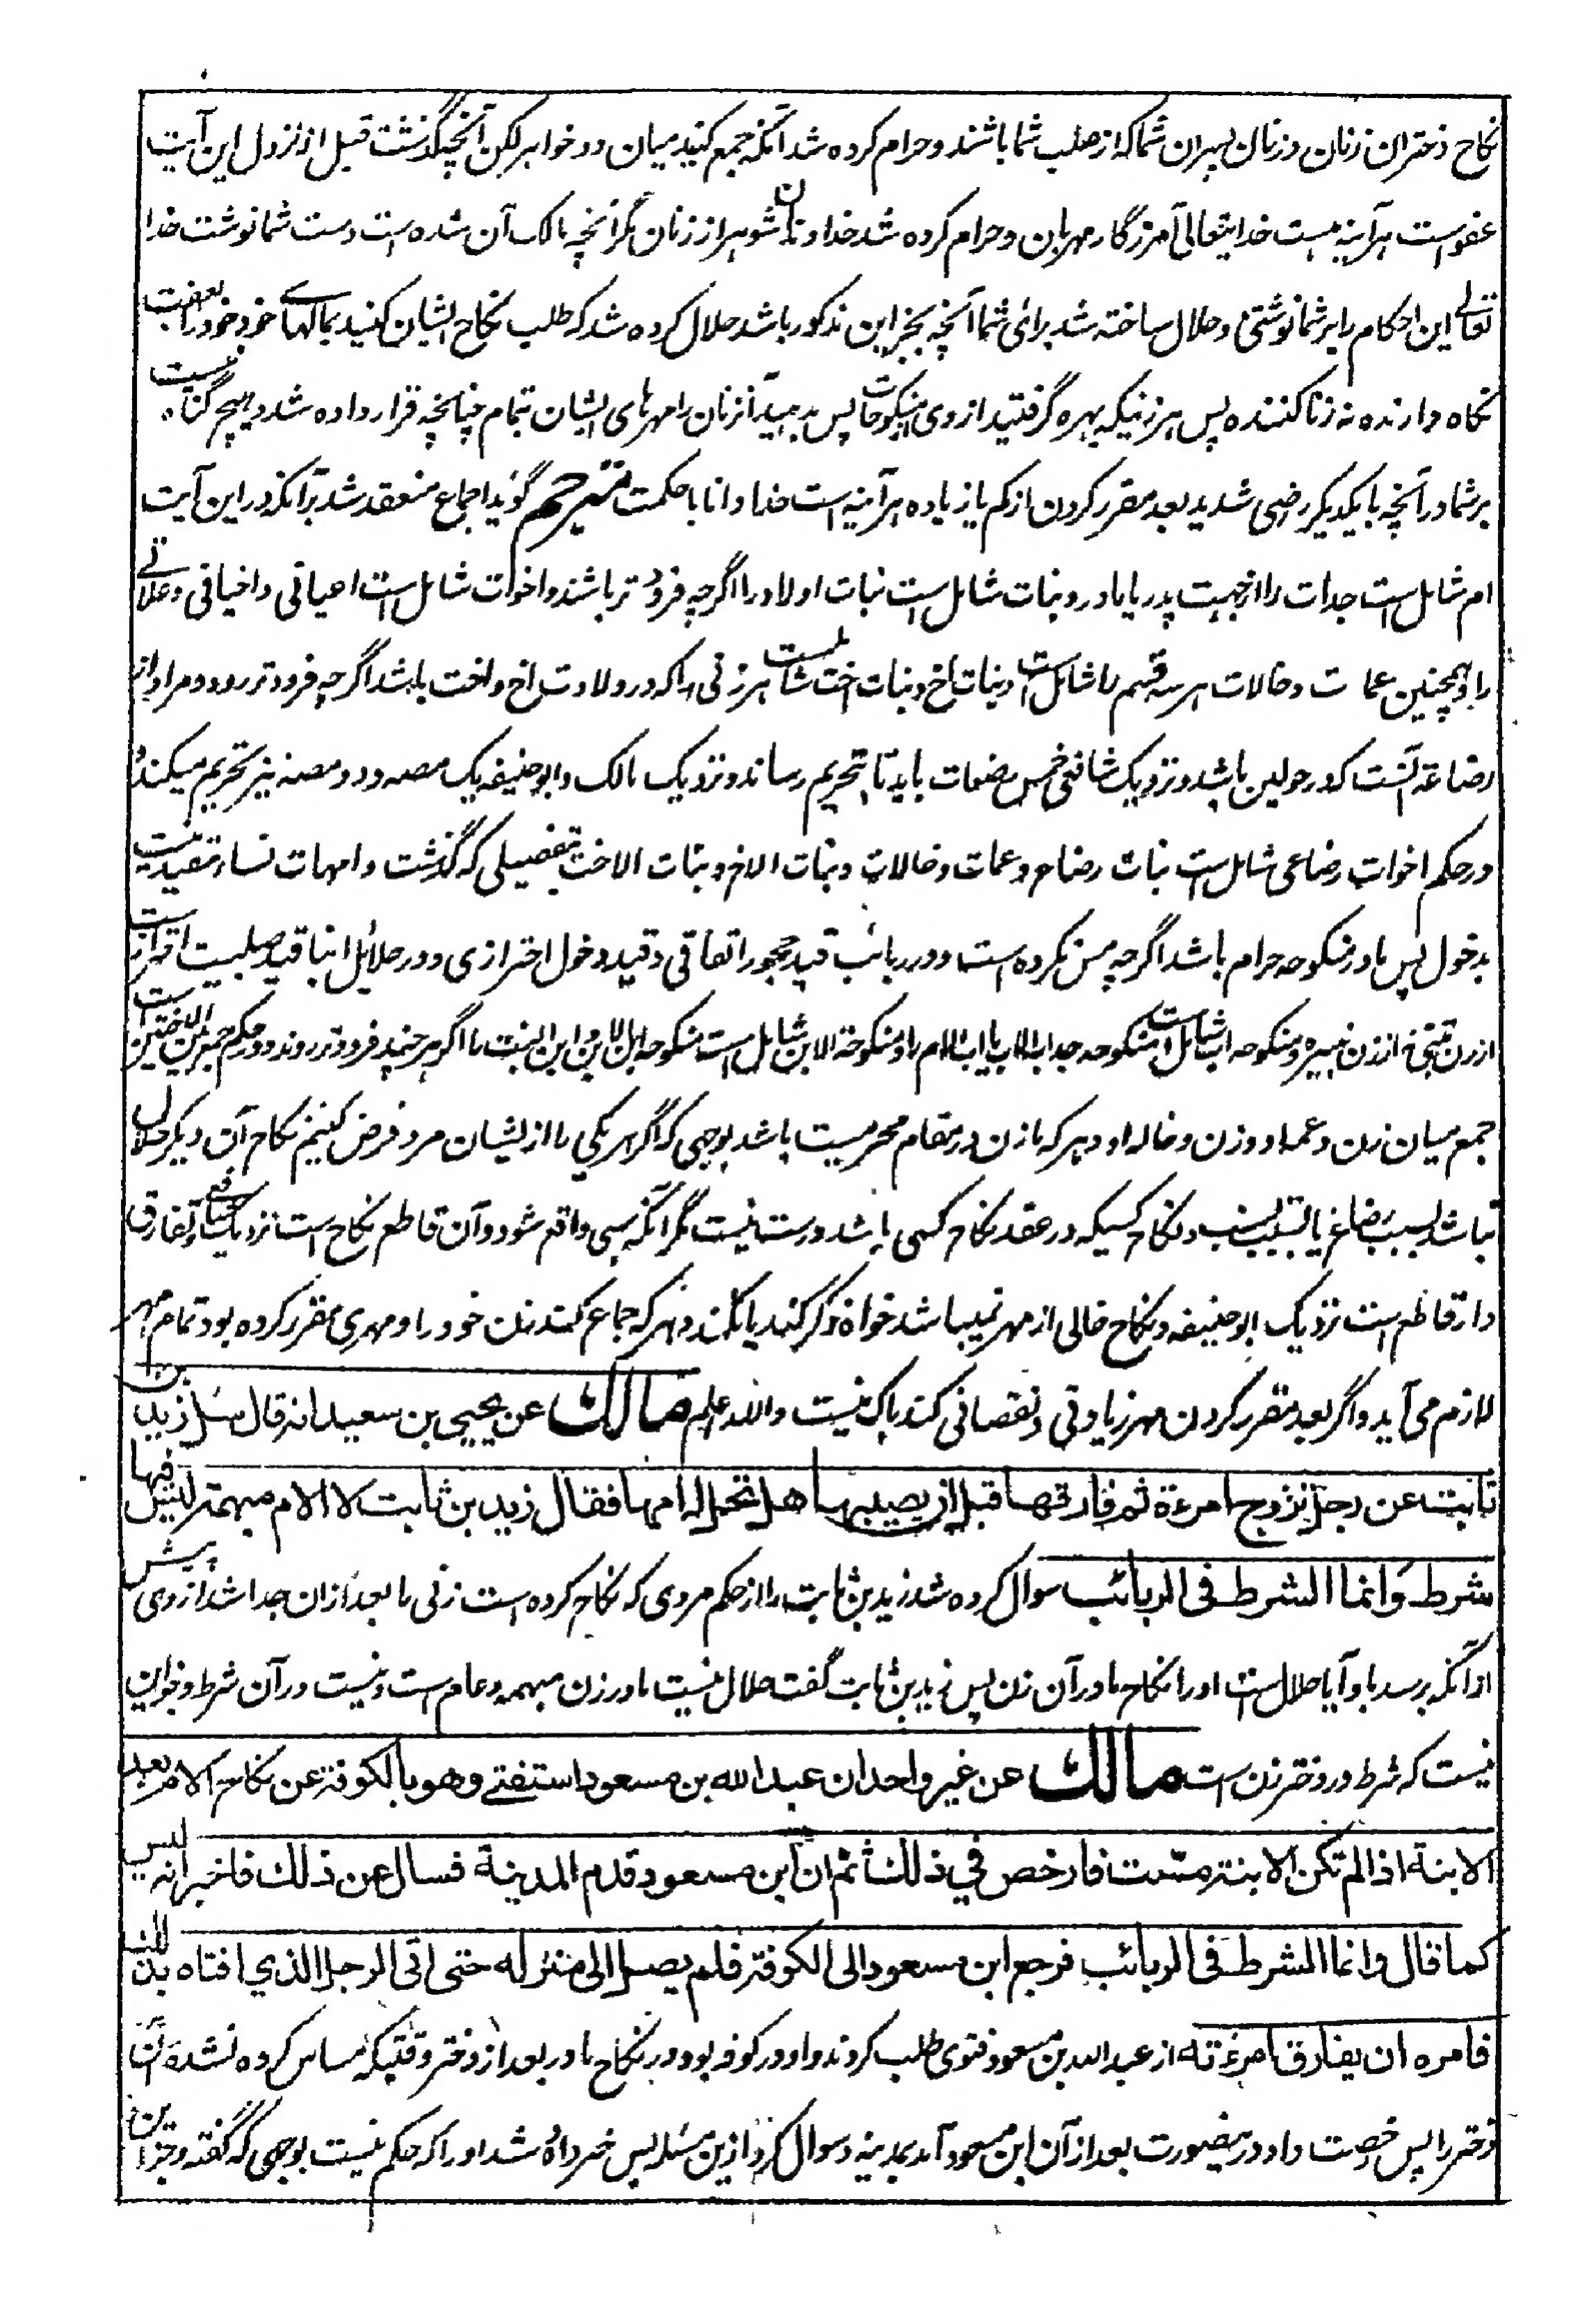 نکاح دختران زنان و زنان پسران شما که از صلب شما باشند و حرام کرده شد آنکه جمع کنید میان دو خواهر لکن آنچه گذشت قبل از نزول این آیت
عفو است هرآینه هست خدایتعالی آمرزگار مهربان و حرام کرده شد خداوندان شوهر از زنان مگر آنچه مالک آن شده است دست شما نوشت خدا
تعالی این احکام را بر شما نوشتنی و حلال ساخته شد برای شما آنچه بجز این مذکور باشد حلال کرده شد که طلب نکاح ایشان کنید بمالهای خود خود را بعفت
نگاه دارنده نه زنا کننده پس هر زنیکه بهره گرفتید از وی از منکوحات پس بدهید آنزنان را مهرهای ایشان تمام چنانچه قرار داده شد و هیچ گناه نیست
بر شما در آنچه با یکدیگر راضی شدید بعد مقرر کردن از کم یا زیاده هرآینه است خدا دانا با حکمت مترجم گوید اجماع منعقد شد بر آنکه در این آیت
ام شامل است جدات را از جهت پدر یا مادر و بنات شامل است بنات اولاد را اگرچه فرود تر باشند و اخوات شامل است اعیانی و اخیافی و علاتی
را و همچنین عمات و خالات هر سه قسم را شامل است و بنات اخ و بنات اخت شامل است هر زنی را که در ولادت اخ و اخت باشد اگرچه فرودتر رود و مراد از
رضاعه آنست که در حولین باشد و نزدیک شافعی خمس رضعات باید تا بتحریم رساند و نزدیک مالک و ابوحنیفه یک مصه و دو مصه نیز تحریم میکند و
در حکم اخوات رضاعی شامل است بنات رضاع و عمات و خالات و بنات الاخ و بنات الاخت بتفصیلی که گذشت و امهات نساء مقید نیست
بدخول پس مادر منکوحه حرام باشد اگرچه مس نکرده است و در ربائب قید حجور اتفاقی و قید دخول احترازی و در حلائل ابنا قید صلبیت احتراز است
از زن متبنی نه از زن نبیره و منکوحه اب شامل است منکوحه جد اب الاب یا اب الام را و منکوحة الابن شامل است منکوحه ابن الابن و ابن البنت را اگر هر چند فرودتر روند و در حکم جمع بین الاختین است
جمع میان زن و عمه او و زن و خاله او و هر که با زن در مقام محرمیت باشد بوجهی که اگر هر یکی را از ایشان مرد فرض کنیم نکاح آن دیگر حلال
نباشد بسبب رضاع یا بسبب نسب و نکاح کسیکه در عقد نکاح کسی باشد درست نیست مگر آنکه سبی واقع شود و آن قاطع نکاح است نزدیک شافعی و تفارق
دار قاطع است نزدیک ابوحنیفه و نکاح خالی از مهر نمیباشد خواه ذکر کنند یا نکنند و هر که جماع کند زن خود را و مهری مقرر کرده بود تمام مهر
لازم می آید و اگر بعد مقرر کردن مهر زیادتی و نقصانی کند باک نیست والله اعلم مالك عن یحیی بن سعید انه قال سئل زید بن
ثابت عن رجل تزوج امرءة ثم فارقها قبل ان یصیبها هل تحل له امها فقال زید بن ثابت لا الام مبهمة لیس فیها
شرط وانما الشرط فی الربائب سوال کرده شد زید بن ثابت را از حکم مردی که نکاح کرده است زنی را بعد ازان جدا شد از وی پیش
از آنکه برسد باو آیا حلال است او را نکاح مادر آن زن پس زید بن ثابت گفت حلال نیست مادر زن مبهمه و عام است و نیست در آن شرط و جز این
نیست که شرط در دختر زن است مالك عن غیر واحد ان عبد الله بن مسعود استفتے وهو بالکوفة عن نکاح الام بعد
الابنة اذا لم تکن الابنة مسّت فارخص في ذلك ثم ان ابن مسعود قدم المدینة فسال عن ذلك فاخبر انه لیس
کما قال وانما الشرط فی الربائب فرجع ابن مسعود الی الکوفة فلم یصل الی منزله حتی اتی الرجل الذي افتاه بذلك
فامره ان یفارق امرءته از عبد الله بن مسعود فتوی طلب کردند و او در کوفه بود در نکاح مادر بعد از دختر وقتیکه مساس کرده نشده آن
دختر را پس رخصت داد در ینصورت بعد از آن ابن مسعود آمد بمدینه و سوال کرد ازین مسئله پس خبر داده شد او را که حکم نیست بوجهی که گفته و جز این